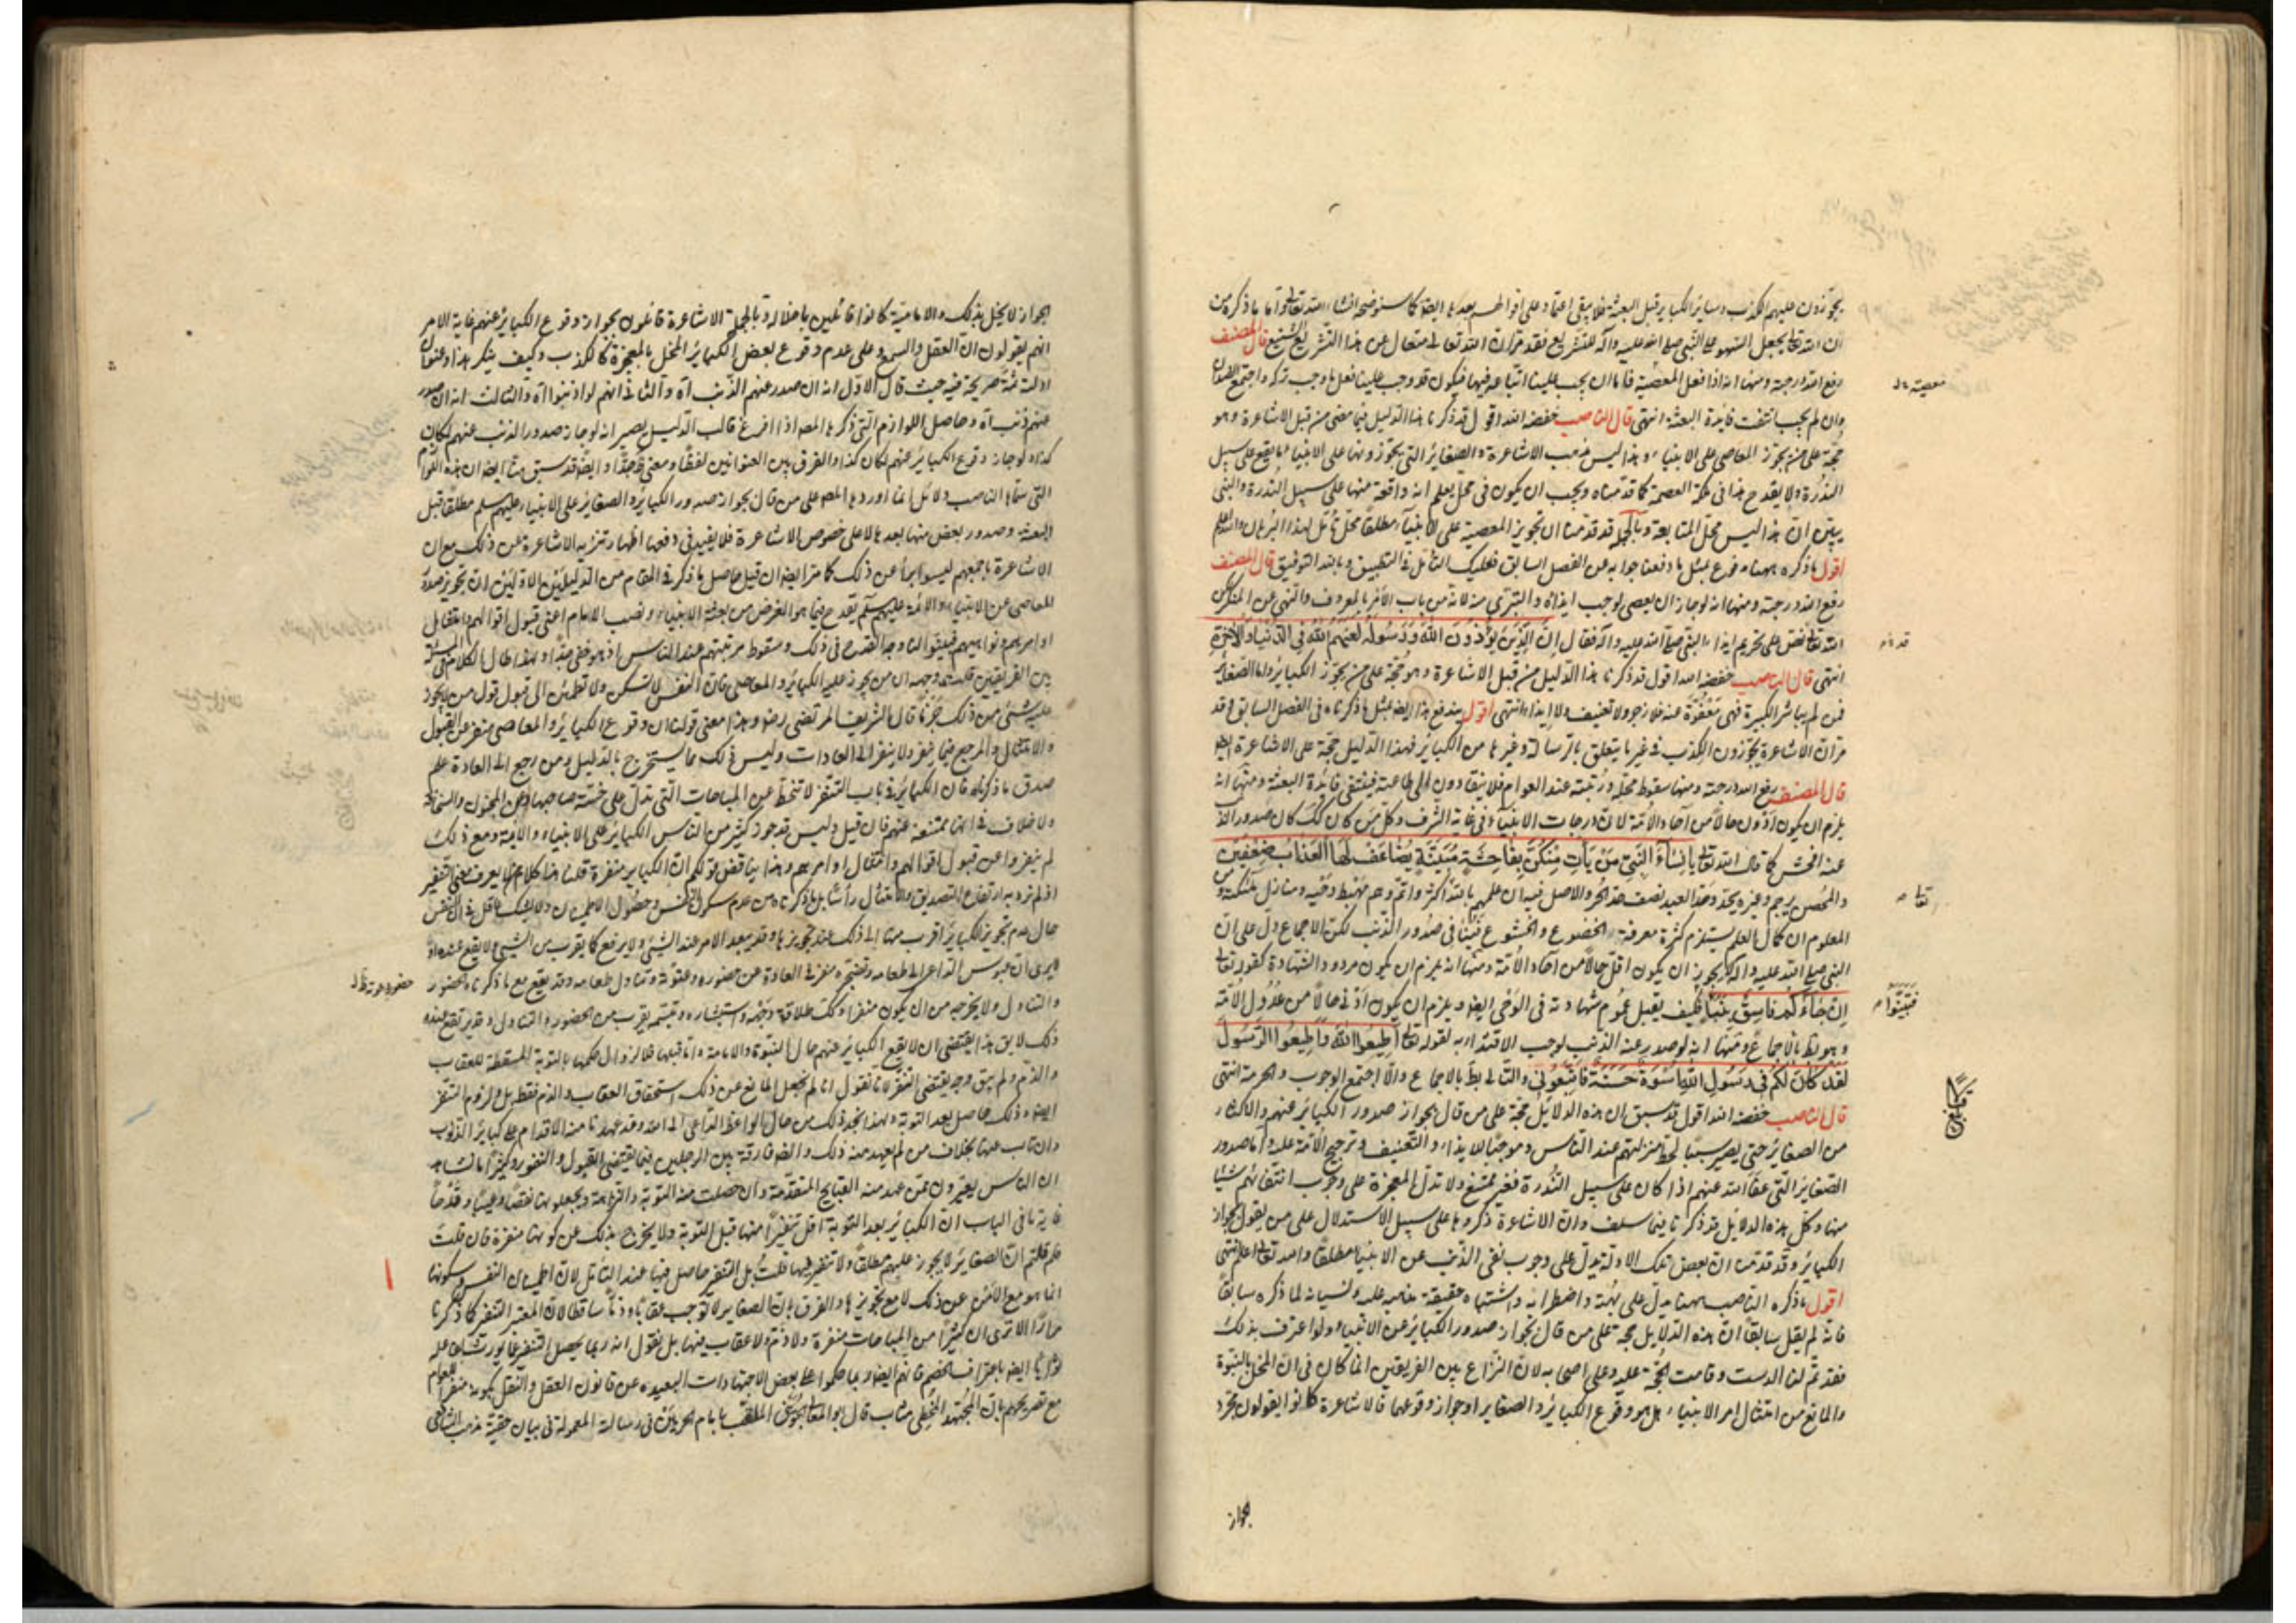 يجوّزون عليهم الكذب وسائر الكباير قبل البعثة فلا يبقى اعتماد على اقوالهم بعدها ايضا كما سنوضحه انشاء الله تعالى واما ما ذكره من
ان الله تعالى يجعل السهو على النبي صلى الله عليه وآله للتشريع فقد مرّ ان الله تعالى متعال عن هذا التشريع الشنيع قال المصنف
رفع الله درجته ومنها انه اذا فعل المعصية فاما ان يجب علينا اتباعه فيها فيكون قد وجب علينا فعل ما وجب تركه واجتمع الضدان
معصية
وان لم يجب انتفت فايدة البعثة انتهى قال الناصب خفضه الله اقول قد ذكرنا هذا الدليل فيما مضى من قبل الاشاعرة وهو
حجّة على من يجوّز المعاصى على الانبياء وهذا ليس مذهب الاشاعرة والصغاير التى يجوّزونها على الانبياء ما يقع على سبيل
الندرة ولا يقدح هذا فى ملكة العصمة كما قدمناه ويجب ان يكون فى محل يعلم انه واقعة منها على سبيل الندرة والنبى
يبيّن انّ هذا ليس محلّ المتابعة وبالجملة قد قدمنا ان تجويز المعصية على الانبياء مطلقا محلّ تأمّل لهذا البرهان والله اعلم
اقول ما ذكره ههنا مدفوع بمثل ما دفعنا جوابه عن الفصل السابق فعليك التامل فى التطبيق وبالله التوفيق قال المصنف
رفع الله درجته ومنها انه لو جاز ان يعصى لوجب ايذاؤه والتبرّى منه لانه من باب الأمر بالمعروف والنهى عن المنكر لكن
الله تعالى نصّ على تحريم ايذاء النبى صلى الله عليه وآله فقال إنَّ الَّذِينَ يُؤذُونَ اللهَ وَرَسُولَهُ لَعَنَهُمُ اللهُ فِي الدُّنيَا وَالآخِرَةِ
قد
انتهى قال الناصب خفضه الله اقول قد ذكرنا هذا الدليل من قبل الاشاعرة وهو حجّة على من يجوّز الكبائر واما الصغائر
فمن لم يباشر الكبيرة فهى معفوّة عنه فلا زجر ولا تعنيف ولا ايذاء انتهى اقول يندفع هذا ايضا بمثل ما ذكرناه فى الفصل السابق وقد
مرّ ان الاشاعرة يجوّزون الكذب فى غير ما يتعلق بالرسالة وغيرها من الكبائر فهذا الدليل حجّة على الاشاعرة ايضا
قال المصنف رفع الله درجته ومنها سقوط محلّه ورتبته عند العوام فلا ينقادون الى طاعته فينتفى فائدة البعثة ومنها انه
يلزم ان يكون ادون حالا من آحاد الأمّة لان درجات الانبياء فى غاية الشرف وكل من كان كك كان صدور الذنب
عنه افحش كما قال الله تعالى يا نِسَاءَ النَّبِيِّ مَن يَأتِ مِنكُنَّ بِفَاحِشَةٍ مُبَيِّنَةٍ يُضَاعَف لَهَا العَذَابُ ضِعفَينِ
والمحصن يرجم وغيره يحدّ وحدّ العبد نصف حدّ الحرّ والاصل فيه ان علمهم بالله اكثر واتمّ وهم مهبط وحيه ومنازل ملئكته ومن
تعالى
المعلوم ان كمال العلم يستلزم كثرة معرفته والخضوع والخشوع فينافى صدور الذنب لكن الاجماع دلّ على ان
النبى صلى الله عليه وآله لا يجوز ان يكون اقل حالا من آحاد الأمّة ومنها انه يلزم ان يكون مردود الشهادة كقوله تعالى
إن جَاءَكُم فَاسِقٌ بِنَبَأٍ فكيف يقبل عموم شهادته فى الوحى ايضا ويلزم ان يكون ادنى حالا من عدول الأمّة
فَتَبَيَّنُوا
وهو بط بالاجماع ومنها انه لو صدر عنه الذنب لوجب الاقتداء به لقوله تعالى أَطِيعُوا اللهَ وَأَطِيعُوا الرَّسُولَ
لَقَد كَانَ لَكُم فِي رَسُولِ اللهِ أُسوَةٌ حَسَنَةٌ فَاتَّبِعُونِي والتالى بط بالاجماع والا اجتمع الوجوب والحرمة انتهى
قال الناصب خفضه الله اقول قد سبق ان هذه الدلايل حجّة على من قال بجواز صدور الكبائر عنهم والاكثار
من الصغائر حتى يصير سببا لحط منزلتهم عند الناس وموجبا للايذاء والتعنيف وترجيح الأمّة عليه واما صدور
الصغائر التى عفا الله عنهم اذا كان على سبيل الندرة فغير ممتنع ولا تدلّ المعجزة على وجوب انتفائهم شيئا
منها وكل هذه الدلايل قد ذكرنا فيما سلف وان الاشاعرة ذكروها على سبيل الاستدلال على من يقول بجواز
الكبائر وقد قدمنا ان بعض تلك الادلّة يدلّ على وجوب نفى الذنب عن الانبياء مطلقا والله تعالى اعلم انتهى
اقول ما ذكره الناصب ههنا يدلّ على بهته واضطرابه واشتباه حقيقة مذهبه عليه ونسيانه لما ذكره سابقا
فانه لم يقل سابقا انّ هذه الدلايل حجّة على من قال بجواز صدور الكبائر عن الانبياء ولو اعترف بذلك
فقد تمّ لنا الدست وقامت الحجّة عليه وعلى اصحابه لانّ النزاع بين الفريقين انما كان فى انّ المخل بالنبوة
والمانع من امتثال امر الانبياء هل هو وقوع الكبائر والصغاير او جواز وقوعها فالاشاعرة كانوا يقولون مجرّد
بجواز
الجواز لا يخلّ بذلك والامامية كانوا قائلين باخلاله وبالجملة الاشاعرة قائلون بجواز وقوع الكبائر عنهم غاية الامر
انهم يقولون انّ العقل والسمع دلا على عدم وقوع بعض الكبائر المخلّ بالمعجزة كالكذب وكيف ينكر هذا وعنوان
ادلته ثمة صريحة فيه حيث قال الاوّل انه ان صدر عنهم الذنب آه والثانى انهم لو اذنبوا آه والثالث انه ان صدر
عنهم ذنب آه وحاصل اللوازم التى ذكرها المصه اذا افرغ قالب الدليل يصير انه لو جاز صدور الذنب عنهم لكان
كذا ولو جاز وقوع الكبائر عنهم لكان كذا والفرق بين العنوانين لفظا ومعنى ظ جدّا وايضا قد سبق منّا ايضا ان هذه اللوازم
التى سمّاها الناصب دلائل انما اوردها المصه على من قال بجواز صدور الكبائر والصغاير على الانبياء عليهم سلم مطلقا قبل
البعثة وصدور بعض منها بعدها لا على خصوص الاشاعرة فلا يفيد فى دفعها اظهار تنزيه الاشاعرة عن ذلك مع ان
الاشاعرة باجمعهم ليسوا براء عن ذلك كما مرّ ايضا ان قيل حاصل ما ذكر فى المقام من الدليلين الاوّلين ان تجويز صدور
المعاصى عن الانبياء والائمة عليهم سلم يقدح فيما هو الغرض من بعثة الانبياء ونصب الامام اعنى قبول اقوالهم وامتثال
اوامرهم ونواهيهم فبيّنوا لنا وجه القدح فى ذلك وسقوط مرتبتهم عند الناس اذ هو خفى جدّا ولهذا طال الكلام فى المسئلة
بين الفريقين قلت وجهه ان من يجوز عليه الكبائر والمعاصى فان النفس لا تسكن ولا تطمئن الى قبول قول من لا يجوز
عليه شئ من ذلك جزما قال الشريف المرتضى رضه وهذا معنى قولنا ان وقوع الكبائر والمعاصى منفر عن القبول
والامتثال والمرجع فيما ينفر ولا ينفر الى العادات وليس ذلك مما يستخرج بالدليل ومن رجع الى العادة علم
صدق ما ذكرناه فان الكبائر فى باب التنفر لا تنحط عن المباحات التى تدلّ على خسّة صاحبها وعن المجون والسخافة
ولا خلاف فى انها ممتنعة عنهم فان قيل وليس قد جوز كثير من الناس الكبائر على الانبياء والائمة ومع ذلك
لم ينفروا عن قبول اقوالهم وامتثال اوامرهم وهذا يناقض قولكم انّ الكبائر منفرة قلنا هذا كلام من لا يعرف معنى التنفير
اذ لم نرد به ارتفاع التصديق والامتثال رأسا بل ما ذكرناه من عدم سكون النفس وحصول الاطمينان ولا يشكّ عاقل فى ان النفس
حال عدم تجويز الكبائر اقرب منها الى ذلك عند تجويزها وقد يبعد الامر عند الشئ ولا يرتفع كما يقرب من الشئ ولا يقع عنده او
لا يرى ان عبوس الداعى الى طعامه وتضجّره منفر فى العادة عن حضور دعوته وتناول طعامه وقد يقع مع ما ذكرناه الحضور
حضور دعوته ظ
والتناول ولا يخرجه من ان يكون منفرا وكك طلاقة وجهه واستبشاره وتبسّمه يقرب من الحضور والتناول وقد يرتفع عنده
ذلك لا يق هذا يقتضى ان لا يقع الكبائر عنهم حال النبوة والامامة واما قبلها فلا لزوال حكمها بالتوبة المسقطة للعقاب
والذمّ ولم يبق وجه يقتضى التنفر لانا نقول انا لم نجعل المانع عن ذلك استحقاق العقاب والذم فقط بل ولزوم التنفر
ايضا وذلك حاصل بعد التوبة ولهذا نجد ذلك من حال الواعظ الداعى الى الله وقد عهد منه الاقدام على كبائر الذنوب
وان تاب عنها بخلاف من لم يعهد منه ذلك والضرورة فارقة بين الرجلين فيما يقتضى القبول والنفور وكثيرا ما نشاهد
ان الناس يعيّرون من عهد منه القبايح المتقدّمة وان حصلت منه التوبة والنزاهة ويجعلونها نقصا وعيبا وقدحا
غاية ما فى الباب انّ الكبائر بعد التوبة اقلّ تنفيرا منها قبل التوبة ولا يخرج بذلك عن كونها منفرة فان قلت
فلم قلتم انّ الصغاير لا يجوز عليهم مطلقا ولا تنفير فيها قلت بل التنفير حاصل فيها عند التأمّل لان اطمينان النفس وسكونها
انما هو مع الأمن عن ذلك لا مع تجويزها والفرق بان الصغاير لا توجب عقابا وذمّا ساقط لان المعتبر التنفر كما ذكرنا
مرارا الا ترى ان كثيرا من المباحات منفرة ولا ذمّ ولا عقاب فيها بل نقول انه ربما يحصل التنفر
ايضا باعتراف الخصم فانهم ايضا ربما حكموا على بعض الاجتهادات البعيدة عن قانون العقل والنقل بكونه منفرا للعوام
مع تصريحهم بانّ المجتهد المخطى مثاب قال ابو المعالى الجوينى الملقب بامام الحرمين فى رسالته المعمولة فى بيان حقيّة مذهب الشافعى